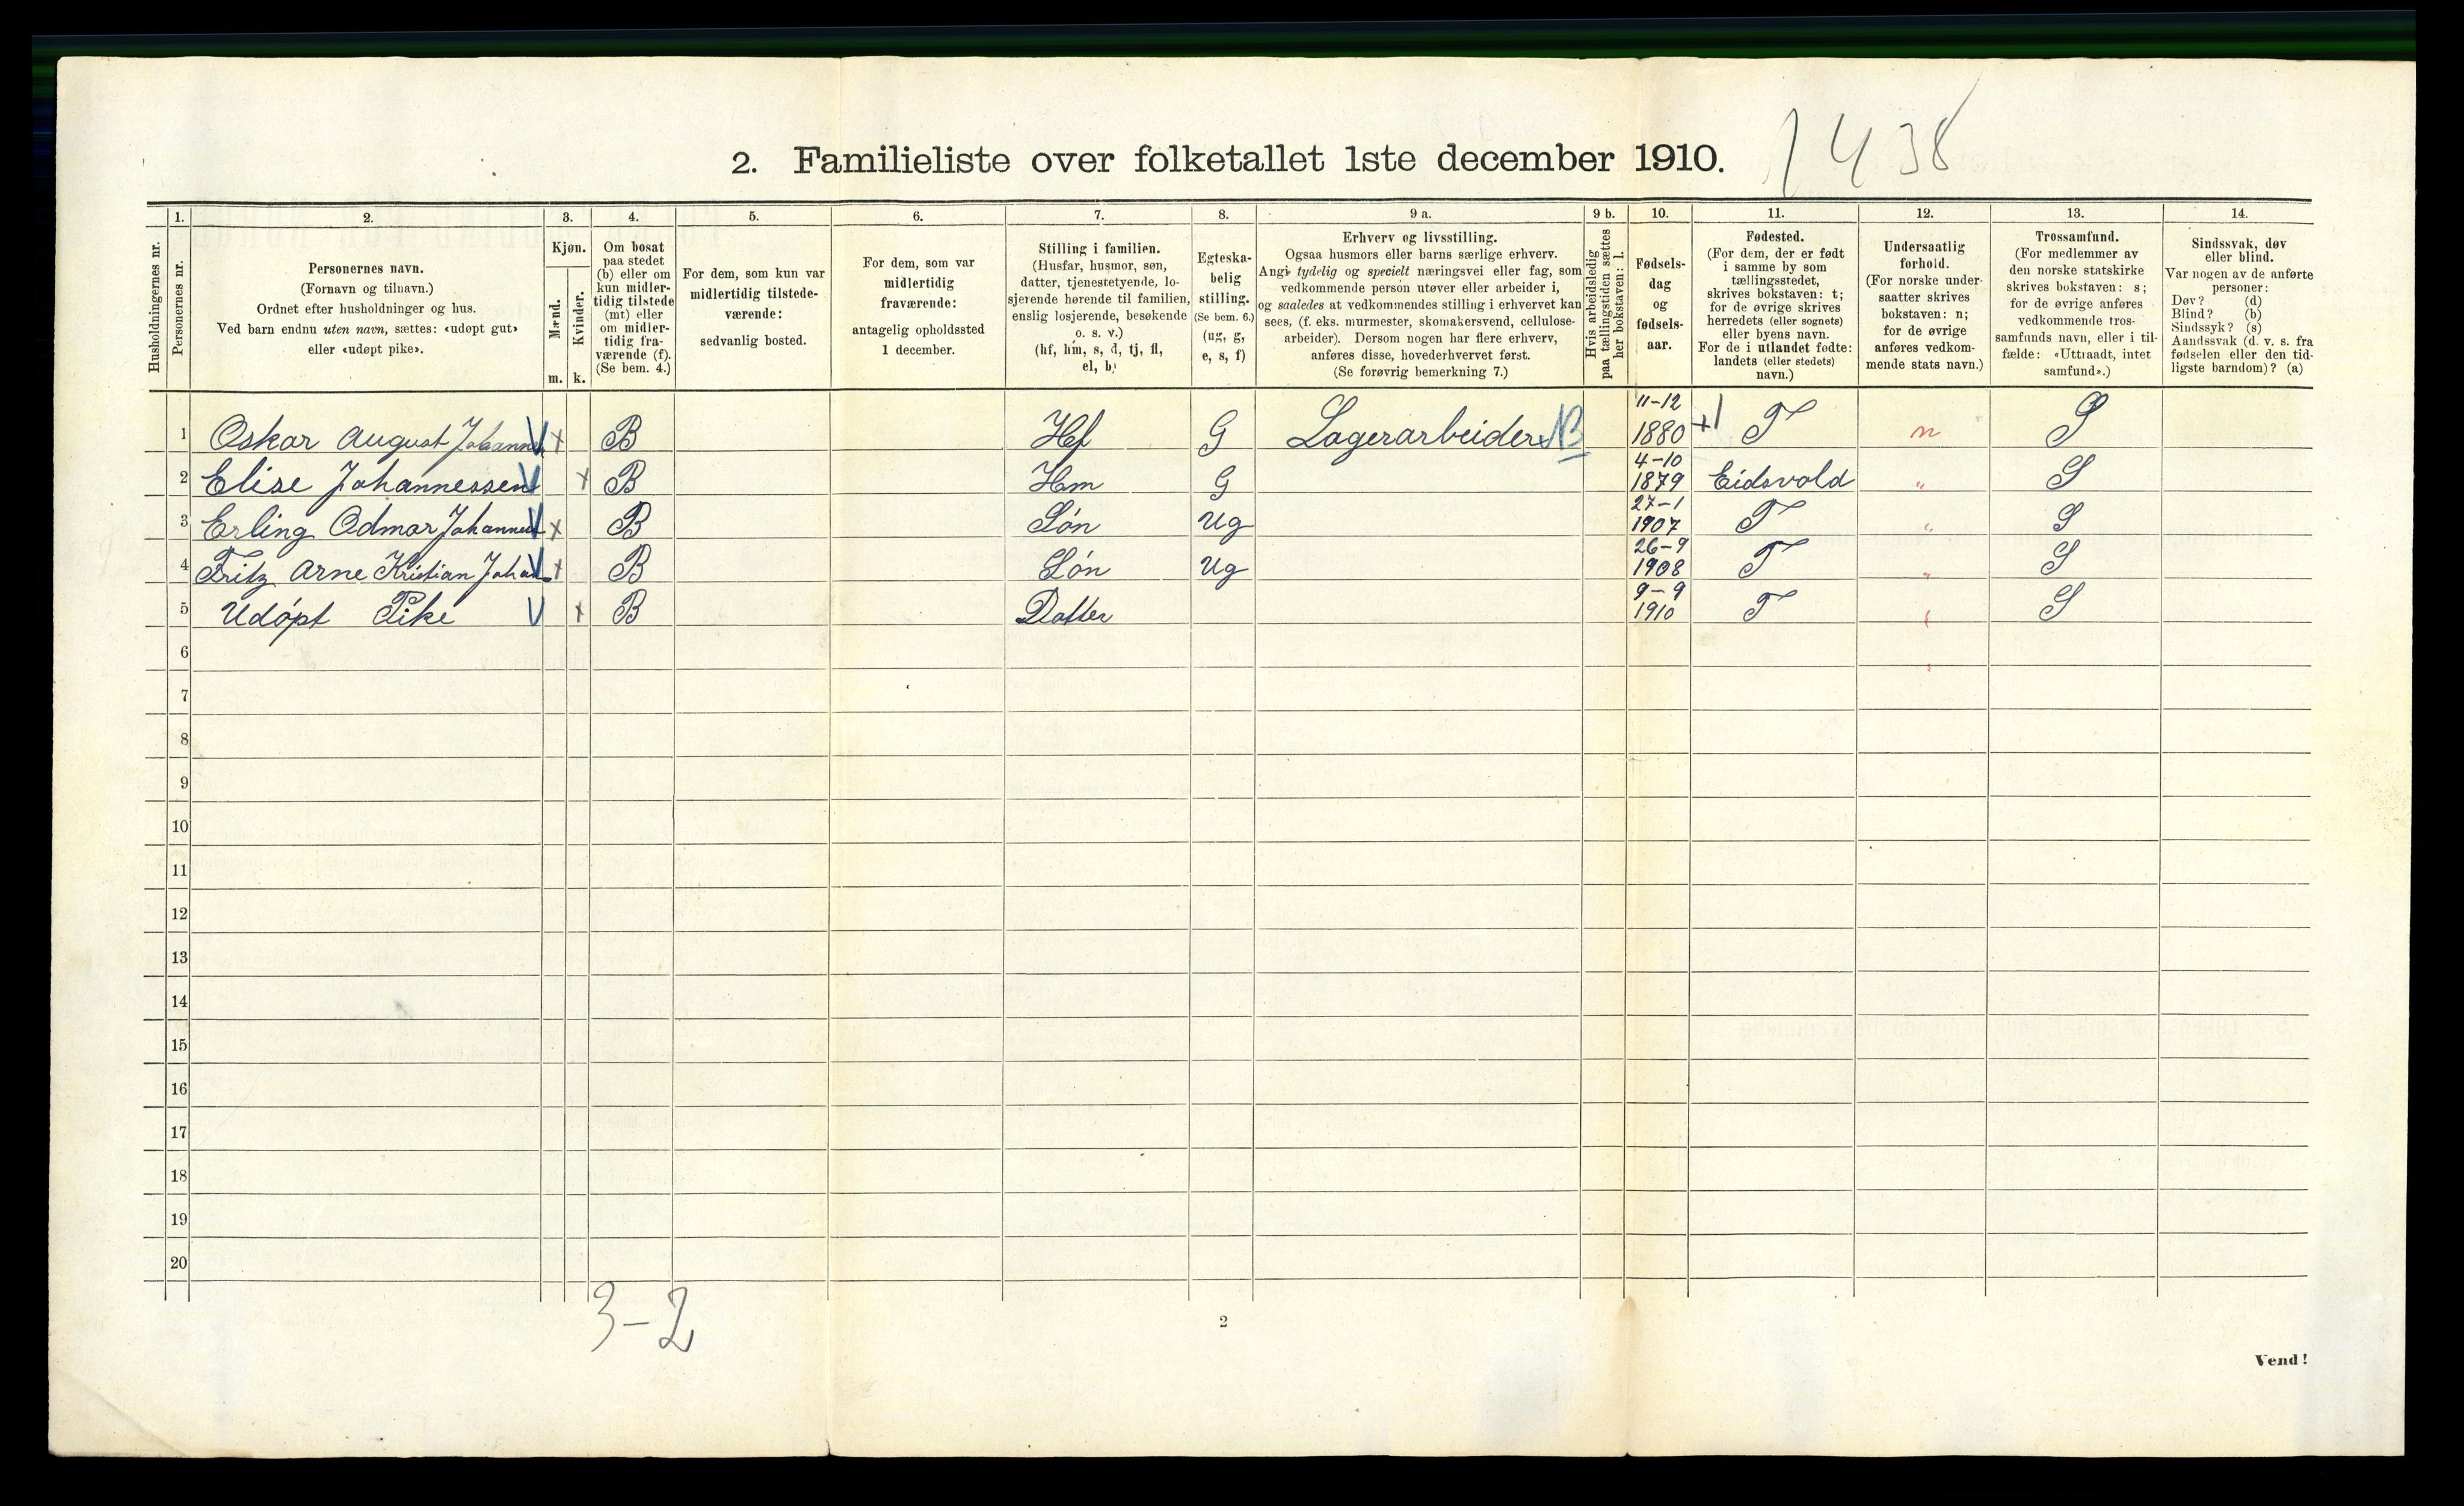 2. Familieliste over folketallet 1ste december 1910.
1438
Husholdningernes nr.
1.
Personernes nr.
2.
Personernes navn.
(Fornavn og tilnavn.)
Ordnet efter husholdninger og hus.
Ved barn endnu uten navn, sættes: «udøpt gut»
eller «udøpt pike».
3.
Kjøn.
Mænd.
Kvinder.
m. k.
4.
Om bosat
paa stedet
(b) eller om
kun midler-
tidig tilstede
(mt) eller
om midler-
tidig fra-
værende (f).
(Se bem. 4.)
5.
For dem, som kun var
midlertidig tilstede-
værende:
sedvanlig bosted.
6.
For dem, som var
midlertidig
fraværende:
antagelig opholdssted
1 december.
7.
Stilling i familien.
(Husfar, husmor, søn,
datter, tjenestetyende, lo-
sjerende hørende til familien,
enslig losjerende, besøkende
o. s. v.)
(hf, hm, s, d, tj, fl,
el, b)
8.
Egteska-
belig
stilling.
(Se bem. 6.)
(ug, g,
e, s, f)
9 a.
Erhverv og livsstilling.
Ogsaa husmors eller barns særlige erhverv.
Angi tydelig og specielt næringsvei eller fag, som
vedkommende person utøver eller arbeider i,
og saaledes at vedkommendes stilling i erhvervet kan
sees, (f. eks. murmester, skomakersvend, cellulose-
arbeider). Dersom nogen har flere erhverv,
anføres disse, hovederhvervet først.
(Se forøvrig bemerkning 7.)
9 b.
Hvis arbeidsledig
paa tællingstiden sættes
her bokstaven: l.
10.
Fødsels-
dag
og
fødsels-
aar.
11.
Fødested.
(For dem, der er født
i samme by som
tællingsstedet,
skrives bokstaven: t;
for de øvrige skrives
herredets (eller sognets)
eller byens navn.
For de i utlandet fødte:
landets (eller stedets)
navn.)
12.
Undersaatlig
forhold.
(For norske under-
saatter skrives
bokstaven: n;
for de øvrige
anføres vedkom-
mende stats navn.)
13.
Trossamfund.
(For medlemmer av
den norske statskirke
skrives bokstaven: s;
for de øvrige anføres
vedkommende tros-
samfunds navn, eller i til-
fælde: «Uttraadt, intet
samfund».)
14.
Sindssvak, døv
eller blind.
Var nogen av de anførte
personer:
Døv? (d)
Blind? (b)
Sindssyk? (s)
Aandssvak (d. v. s. fra
fødselen eller den tid-
ligste barndom)? (a)
1 Oskar August Johannes V x B Hf G Lagerarbeider x B 11-12 1880 +1 T n S
2 Elise Johannessen V x B Hm G 4-10 1879 Eidsvold " S
3 Erling Odmar Johannes V x B Søn Ug 27-1 1907 T " S
4 Fritz Arne Kristian Johan V x B Søn Ug 26-9 1908 T " S
5 Udøpt Pike V x B Datter 9-9 1910 T S
6
7
8
9
10
11
12
13
14
15
16
17
18
19
20
3-2
2
Vend!